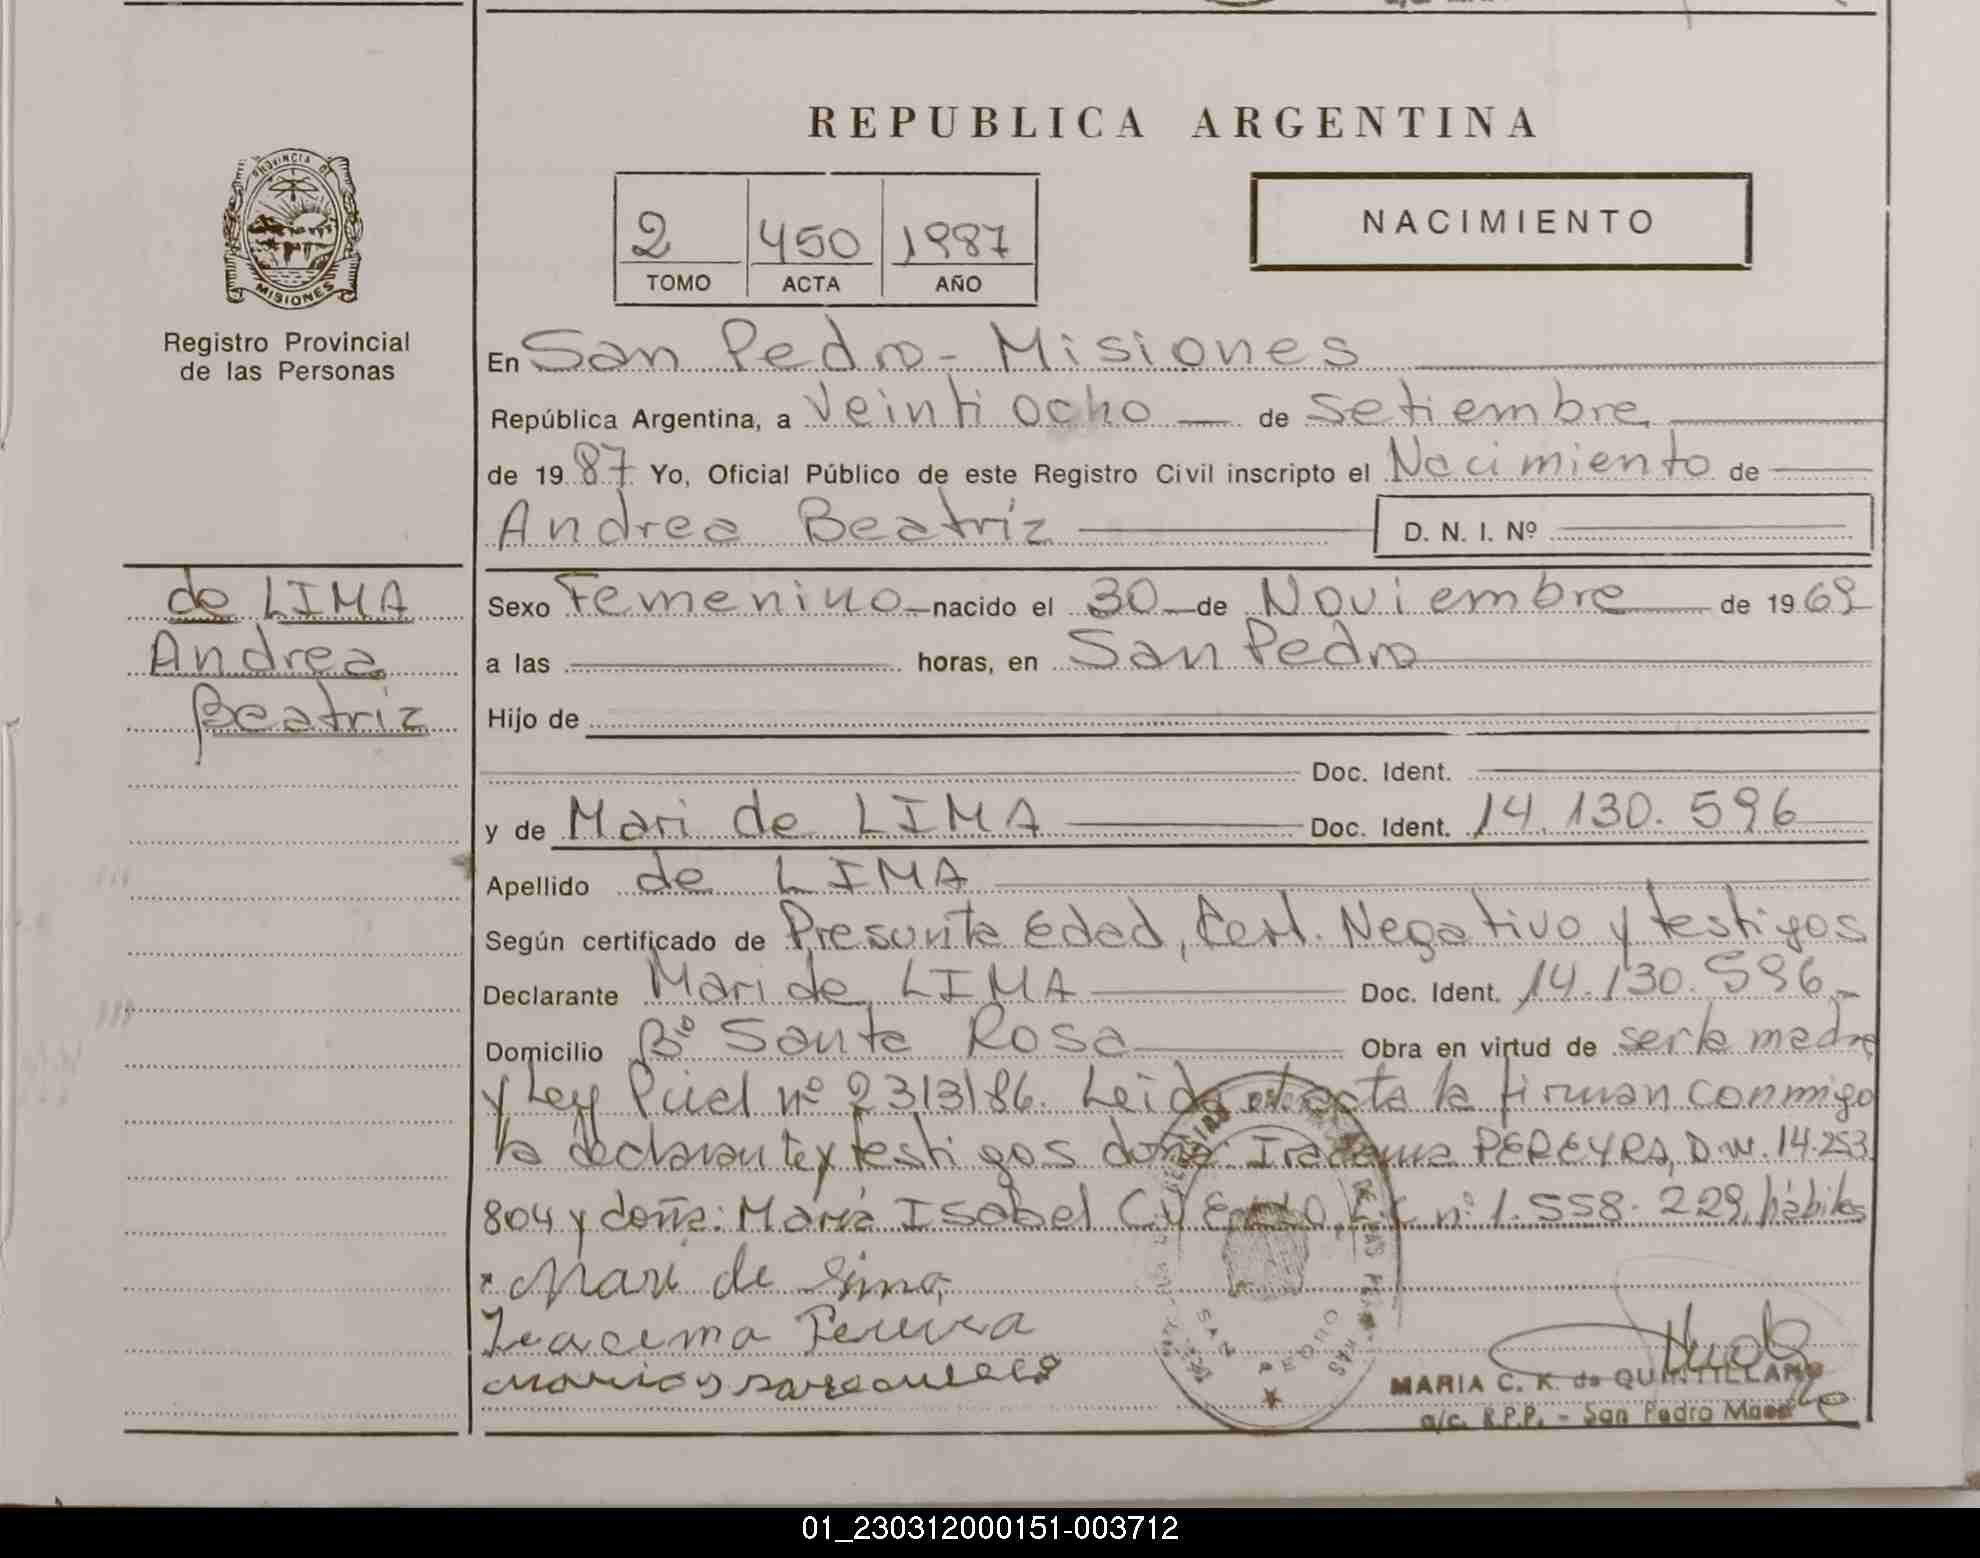 REPUBLICA ARGENTINA
PROVINCIA DE
MISIONES
Registro Provincial
de las Personas
2 450 1987
TOMO ACTA AÑO
NACIMIENTO
En San Pedro - Misiones
República Argentina, a Veinti ocho de setiembre
de 1987 Yo, Oficial Público de este Registro Civil inscripto el Nacimiento de
Andrea Beatriz D. N. I. Nº
de LIMA
Andrea
Beatriz
Sexo Femenino nacido el 30 de Noviembre de 1969
a las horas, en San Pedro
Hijo de
Doc. Ident.
y de Mari de LIMA Doc. Ident. 14.130.596
Apellido de LIMA
Según certificado de Presunta Edad, Cert. Negativo y testigos
Declarante Mari de LIMA Doc. Ident. 14.130.596
Domicilio Bº Santa Rosa Obra en virtud de ser la madre
y Ley Pciel nº 2313/86. Leida el acta la firman conmigo
la declarante y testigos doña: Iracema PEREYRA, D.N. 14.253.
804 y doña: María Isabel L.C nº 1.558.229, hábiles
Mari de Lima
Iracema Pereira
SAN PEDRO
MARIA C. K. de QUINTILLANO
a/c. R.P.P. - San Pedro Mnes
01_230312000151-003712